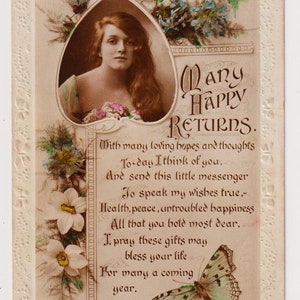 Many
Happy
Returns.
With many loving hopes and thoughts
To-day I think of you,
And send this little messenger
To speak my wishes true,-
Health, peace, untroubled happiness
All that you hold most dear.
I pray these gifts may
bless your life
For many a coming
year.